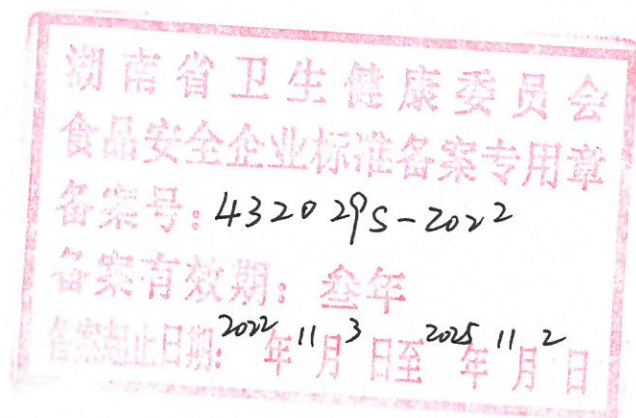 湖南省卫生健康委员会
食品安全企业标准备案专用章
备案号：432029S-2022
备案有效期：叁年
备案起止日期：2022年11月3日至2025年11月2日